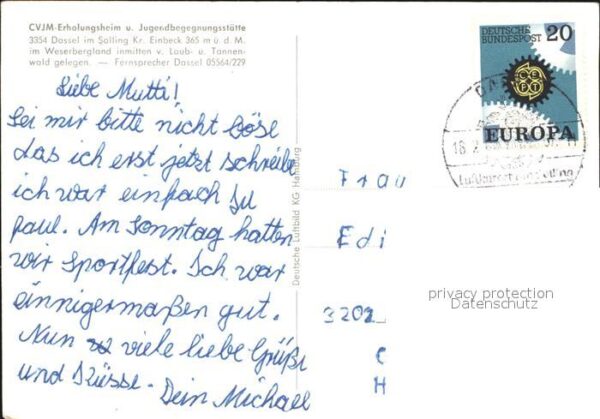 CVJM-Erholungsheim u. Jugendbegegnungsstätte
3354 Dassel im Solling Kr. Einbeck 365 m ü. d. M.
im Weserbergland inmitten v. Laub- u. Tannen-
wald gelegen. — Fernsprecher Dassel 05564/229
Liebe Mutti!
Sei mir bitte nicht böse
das ich erst jetzt schreibe
ich war einfach zu
paul. Am Sonntag hatten
wir Sportfest. Ich war
einnigermaßen gut.
Nun viele liebe Grüße
und Küsse. Dein Michael
Deutsche Luftbild KG Hamburg
DEUTSCHE
BUNDESPOST 20
CEPT
EUROPA
Frau
Edi
3202
C
H
privacy protection
Datenschutz